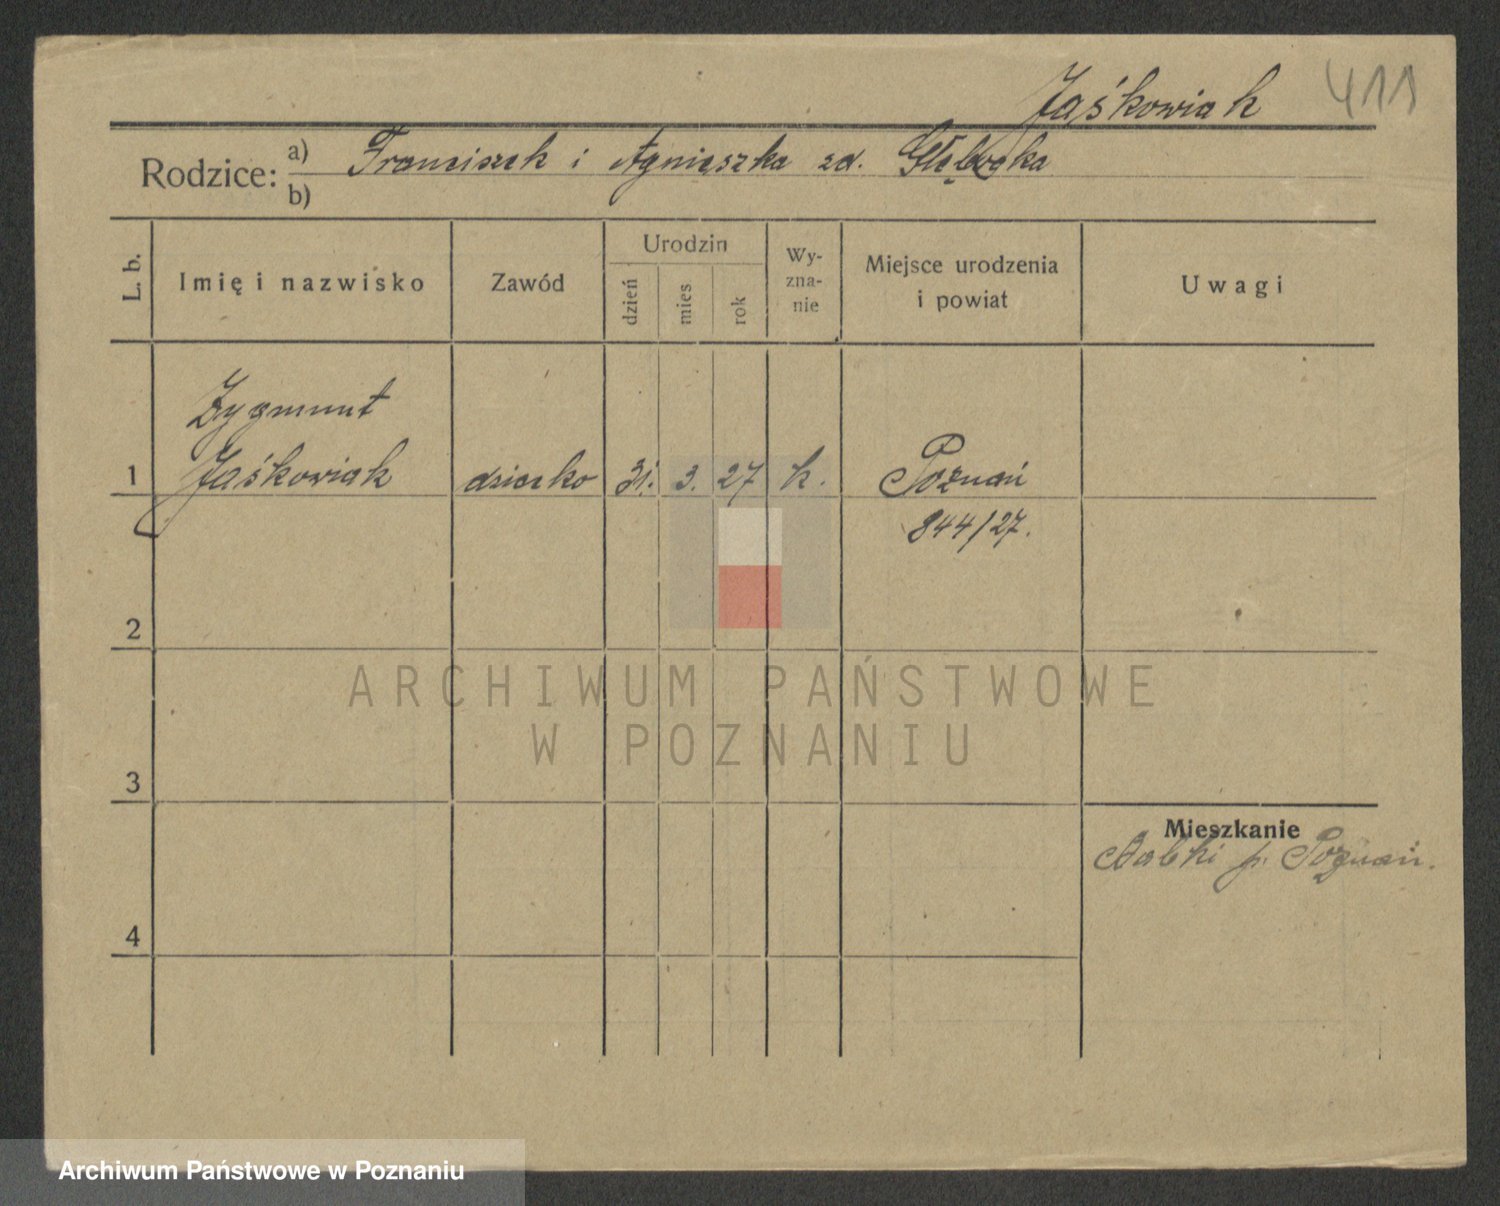 Jaśkowiak 411
Rodzice: a) Franciszek i Agnieszka zd.
b)
L. b. Imię i nazwisko Zawód Urodzin dzień mies rok Wy-zna-nie Miejsce urodzenia i powiat Uwagi
Zygmunt
1 Jaśkowiak dziecko 31. 3. 27 k. Poznań
844/27.
2
ARCHIWUM PAŃSTWOWE
W POZNANIU
3
Mieszkanie
Babki p. Poznań.
4
Archiwum Państwowe w Poznaniu